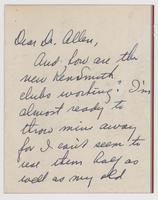 Dear Dr. Allen,
And how are the
new KenSmith
clubs working? I'm
almost ready to
throw mine away
for I can't seem to
use them half as
well as my old